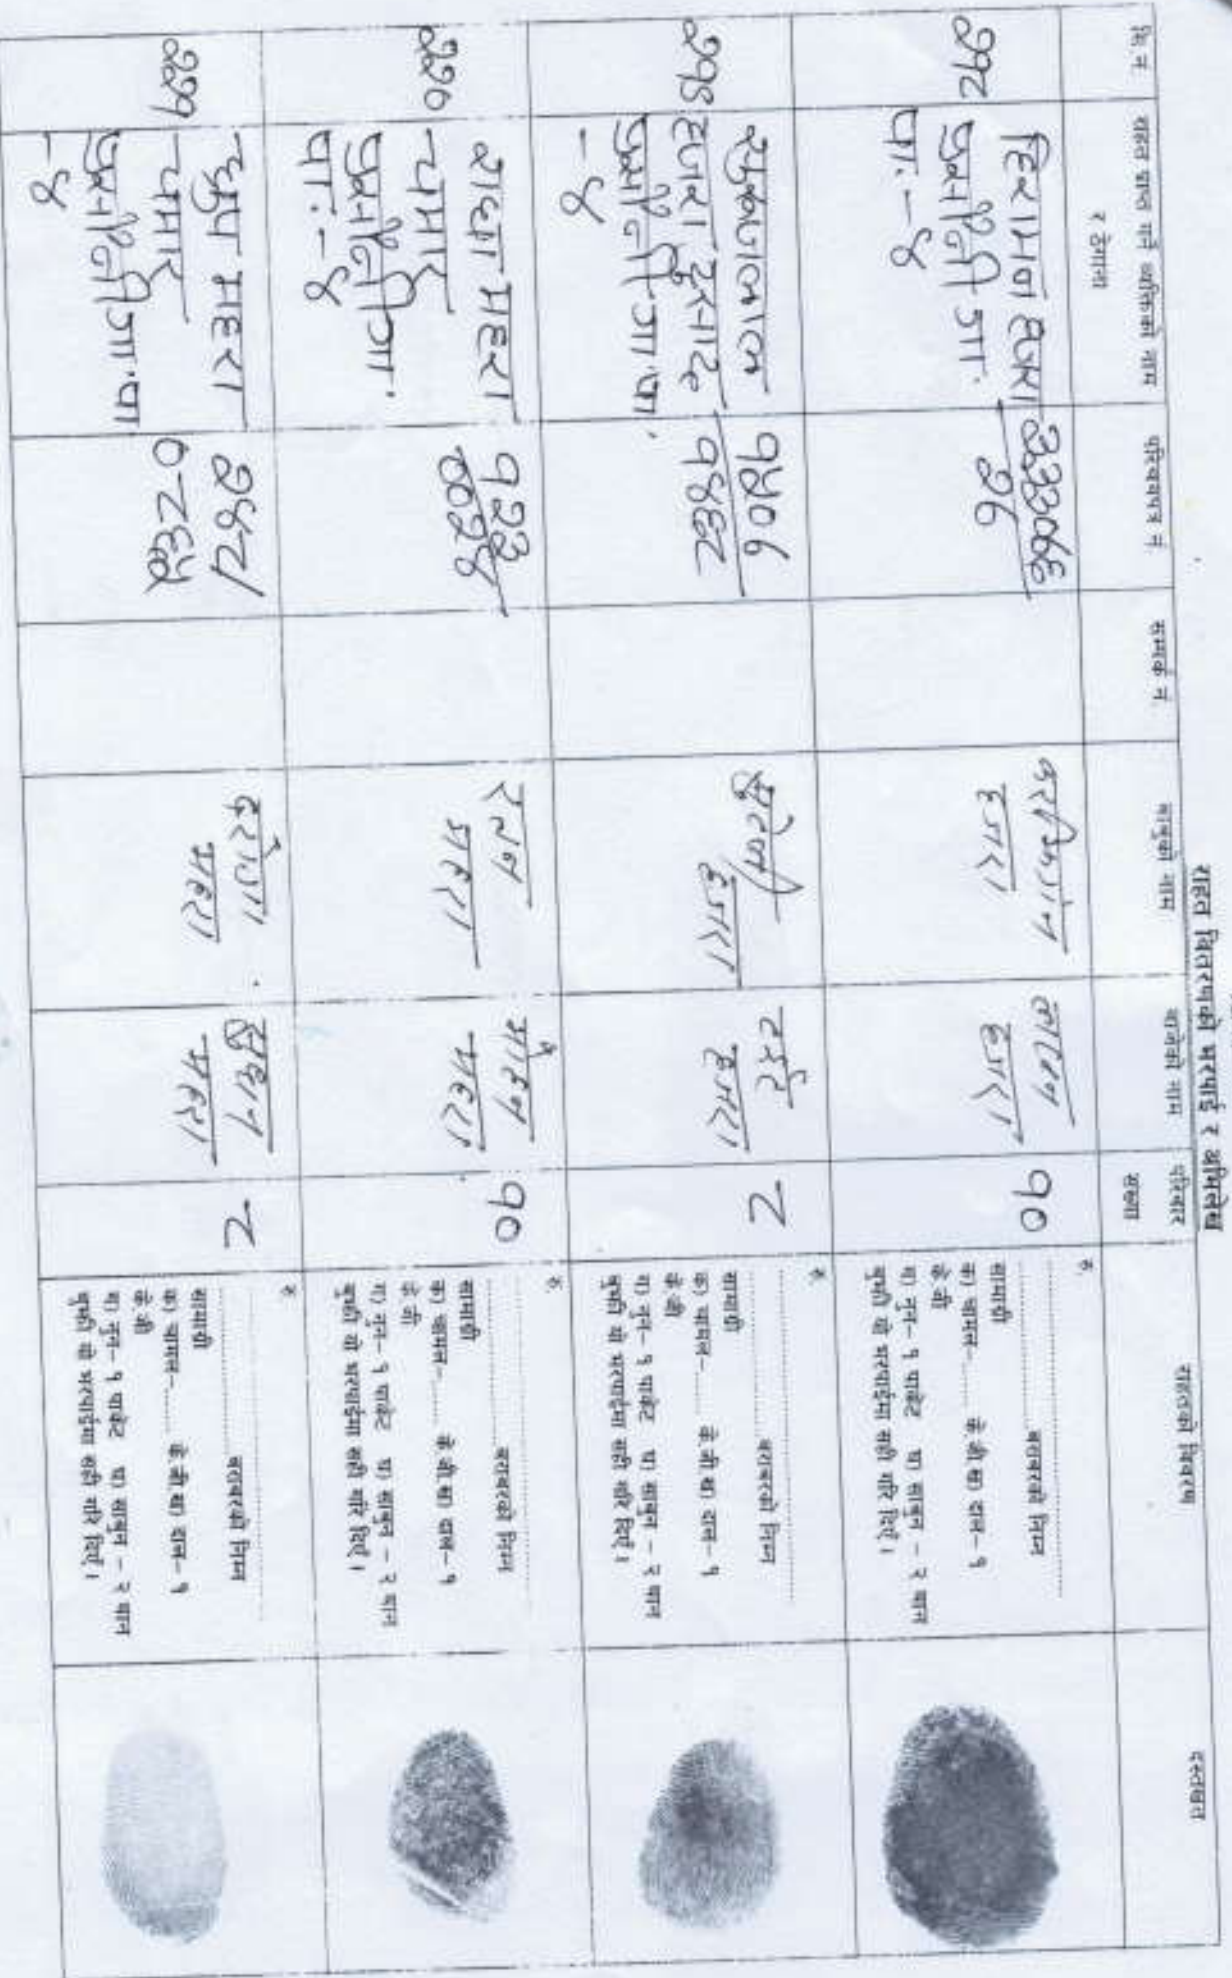 राहत वितरणको भरपाई र अभिलेख
सि.नं.
राहत प्राप्त गर्ने व्यक्तिको नाम
र ठेगाना
परिचयपत्र नं.
सम्पर्क नं.
बाबुको नाम
बाजेको नाम
परिवार
संख्या
राहतको विवरण
दस्तखत
२१८
हिरामन हजरा
पा.-४
३३३०७६
२७
हजरा
लगन
हजरा
१०
रु.
बराबरको निम्न
सामाग्री
क) चामल-...... के.जी.ख) दाल- १
के.जी
ग) नुन- १ पाकेट घ) साबुन - २ थान
बुझी यो भरपाईमा सही गरि दिएँ।
२१९
हजरा दुसाद
-४
१५०७
१४६८
हजरा
हजरा
८
रु.
बराबरको निम्न
सामाग्री
क) चामल-...... के.जी.ख) दाल- १
के.जी
ग) नुन- १ पाकेट घ) साबुन - २ थान
बुझी यो भरपाईमा सही गरि दिएँ।
२२०
राधा महरा
चमार
पा:-४
१२३
००२४
महरा
महरा
१०
रु.
बराबरको निम्न
सामाग्री
क) चामल-...... के.जी.ख) दाल- १
के.जी
ग) नुन- १ पाकेट घ) साबुन - २ थान
बुझी यो भरपाईमा सही गरि दिएँ।
२२१
महरा
चमार
-४
२४८/
०८६५
महरा
महरा
८
रु.
बराबरको निम्न
सामाग्री
क) चामल-...... के.जी.ख) दाल- १
के.जी
ग) नुन- १ पाकेट घ) साबुन - २ थान
बुझी यो भरपाईमा सही गरि दिएँ।